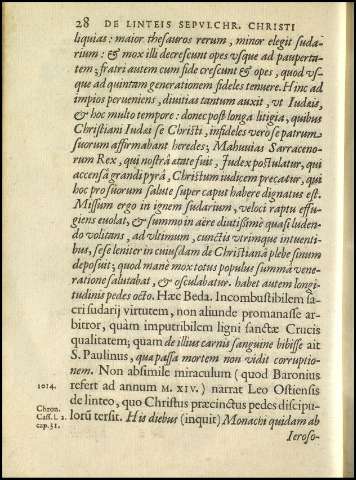 28 DE LINTEIS SEPVLCHR. CHRISTI
liquias: maior thesauros rerum, minor elegit suda-
rium: & mox illi decrescunt opes vsque ad pauperta-
tem; fratri autem cum fide crescunt & opes, quod vs-
que ad quintam generationem fideles tenuere. Hinc ad
impios perueniens, diuitias tantum auxit, vt Iudæis,
& hoc multo tempore: donec post longa litigia, quibus
Christiani Iudæi se Christi, infideles vero se patrum
suorum affirmabant heredes; Mahuuias Sarraceno-
rum Rex, qui nostrâ ætate fuit, Iudex postulatur, qui
accensâ grandi pyrâ, Christum iudicem precatur, qui
hoc pro suorum salute super caput habere dignatus est.
Missum ergo in ignem sudarium, veloci raptu effu-
giens euolat, & summo in aëre diutissimè quasi luden-
do volitans, ad vltimum, cunctis vtrimque intuenti-
bus, sese leniter in cuiusdam de Christiana plebe sinum
deposuit; quod manè mox totus populus summâ vene-
ratione salutabat, & osculabatur. habet autem longi-
tudinis pedes octo. Hæc Beda. Incombustibilem sa-
cri sudarij virtutem, non aliunde promanasse ar-
bitror, quàm imputribilem ligni sanctæ Crucis
qualitatem; quam de illius carnis sanguine bibisse ait
S. Paulinus, qua passa mortem non vidit corruptio-
nem. Non absimile miraculum (quod Baronius
1014. refert ad annum M. XIV.) narrat Leo Ostiensis
Chron. de linteo, quo Christus præcinctus pedes discipu-
Cass. l. 2. lorũ tersit. His diebus (inquit) Monachi quidam ab
cap. 31.
Ieroso-